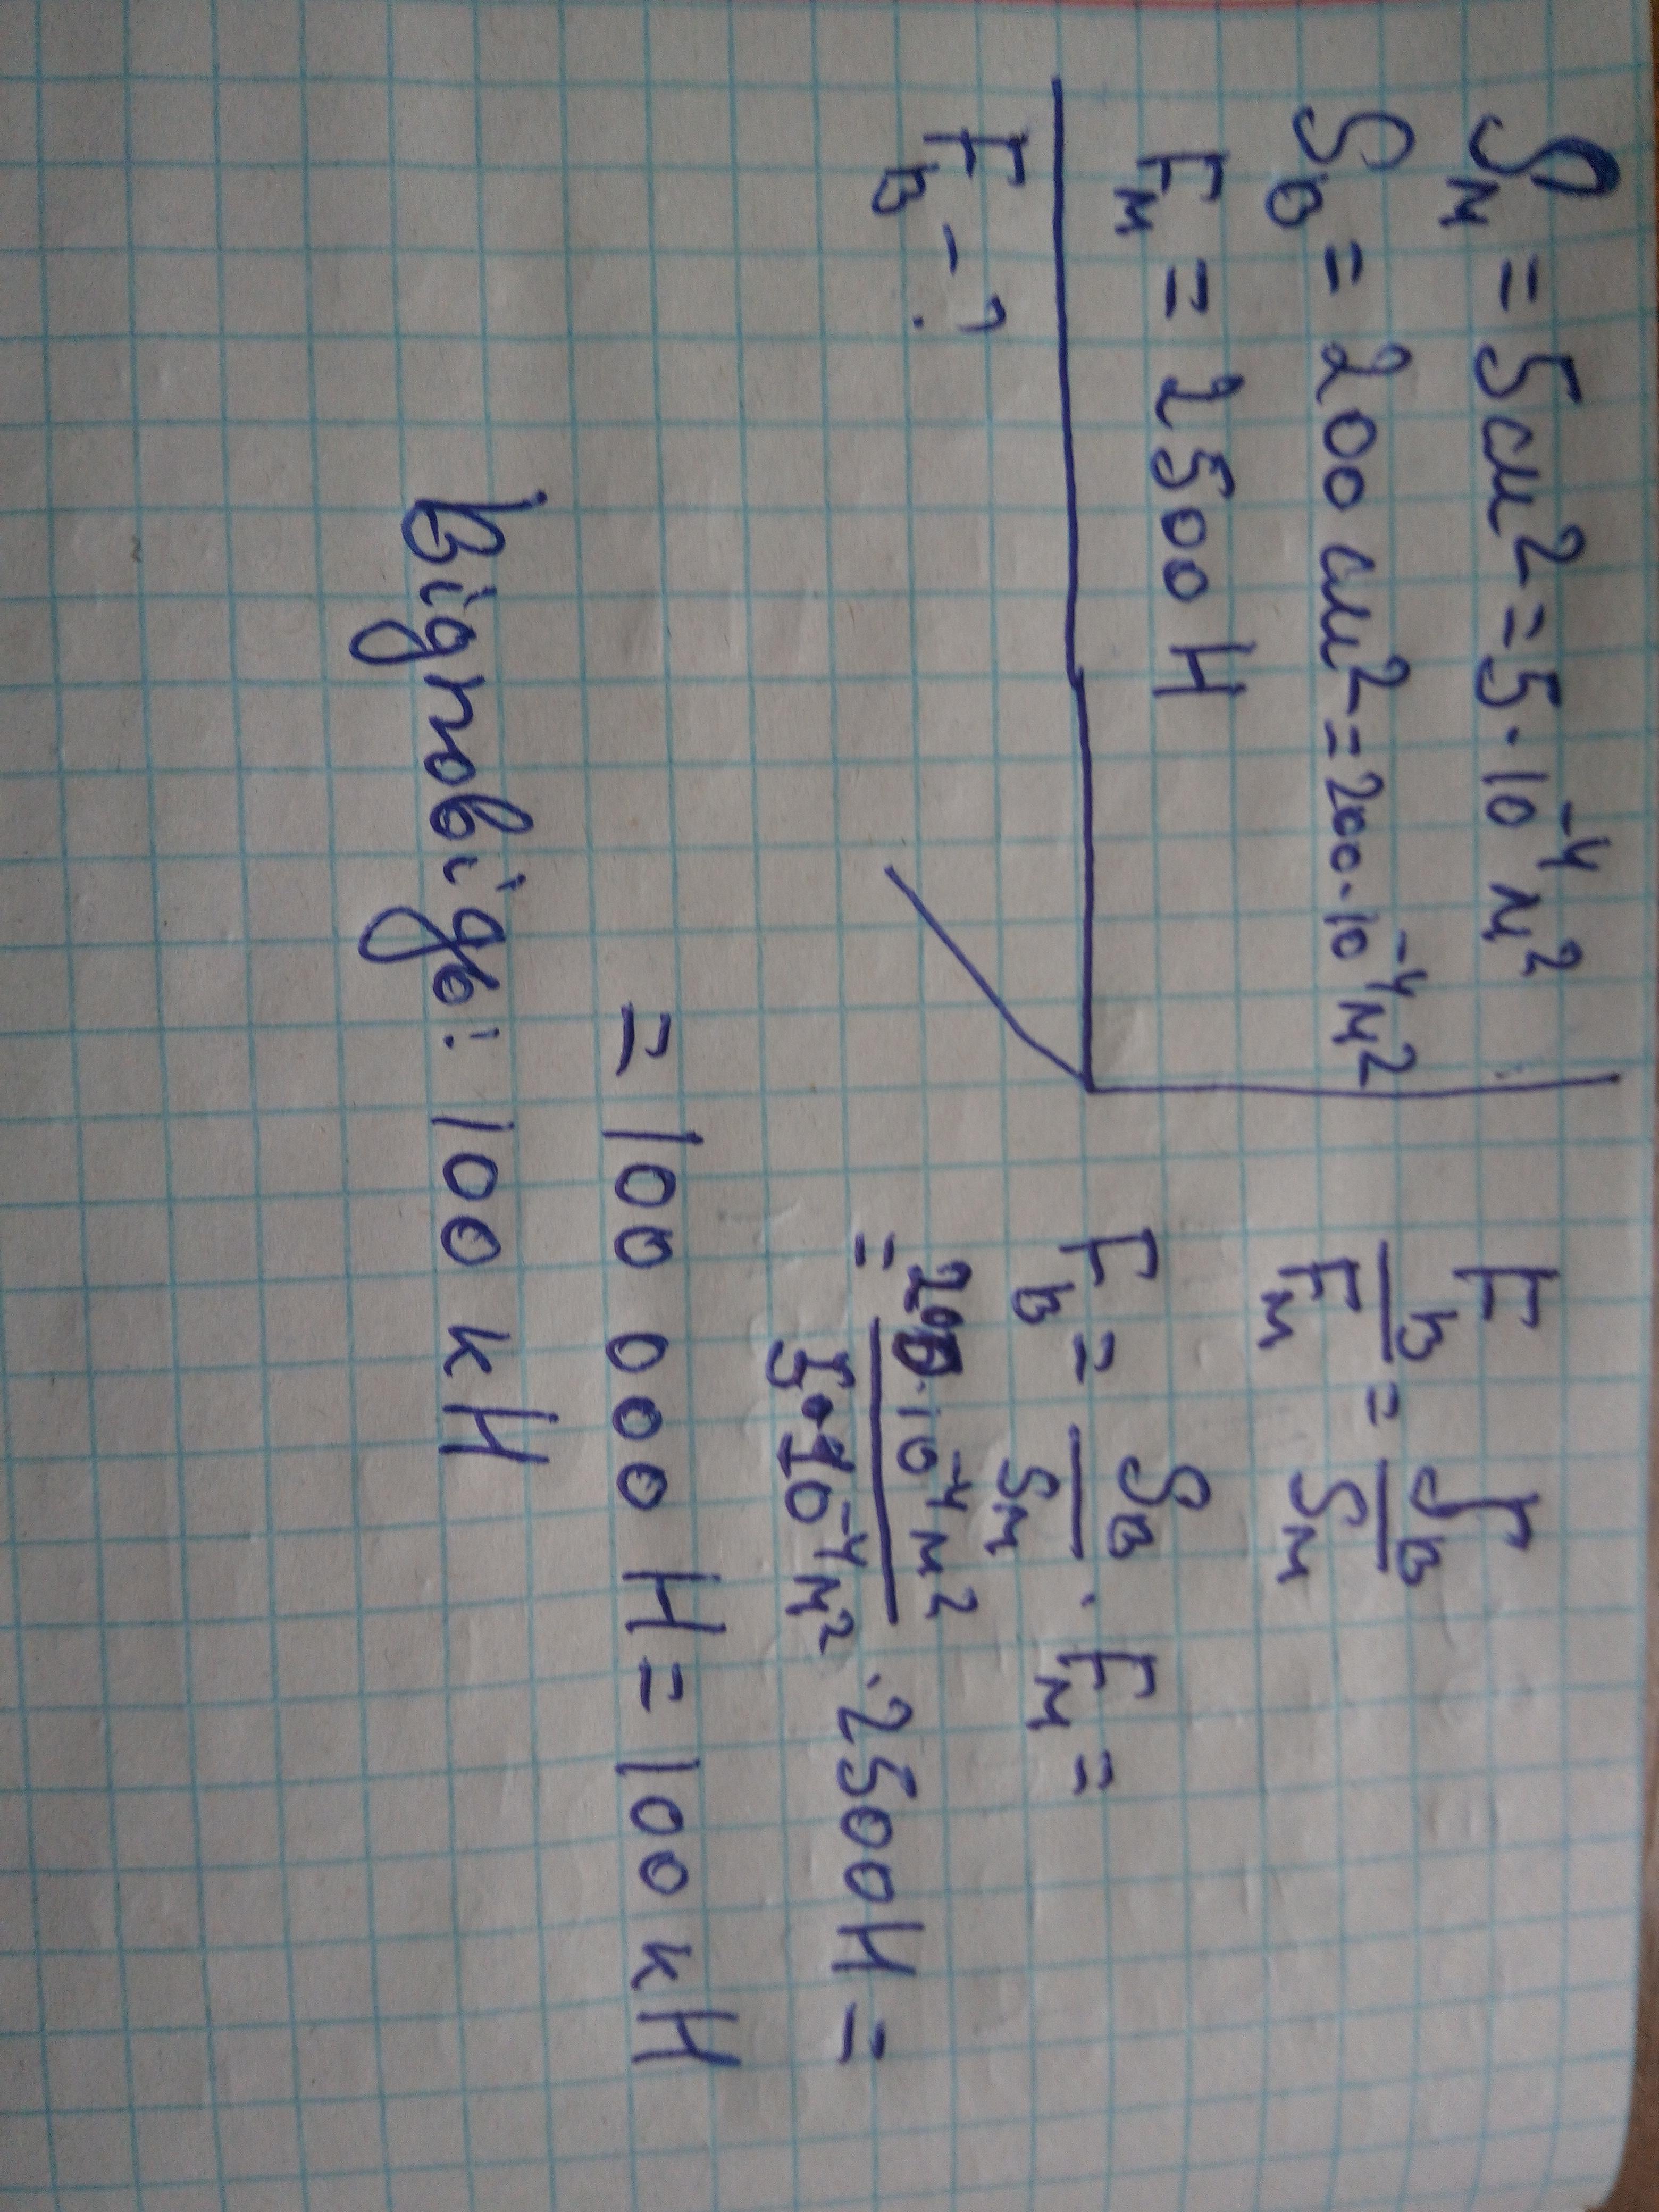 Sм = 5 см² = 5 · 10⁻⁴ м²
Sв = 200 см² = 200 · 10⁻⁴ м²
Fм = 2500 Н
Fв - ?
Fв/Fм = Sв/Sм
Fв = Sв/Sм · Fм =
= 200 · 10⁻⁴ м² / 5 · 10⁻⁴ м² · 2500 Н =
= 100 000 Н = 100 кН
Відповідь: 100 кН